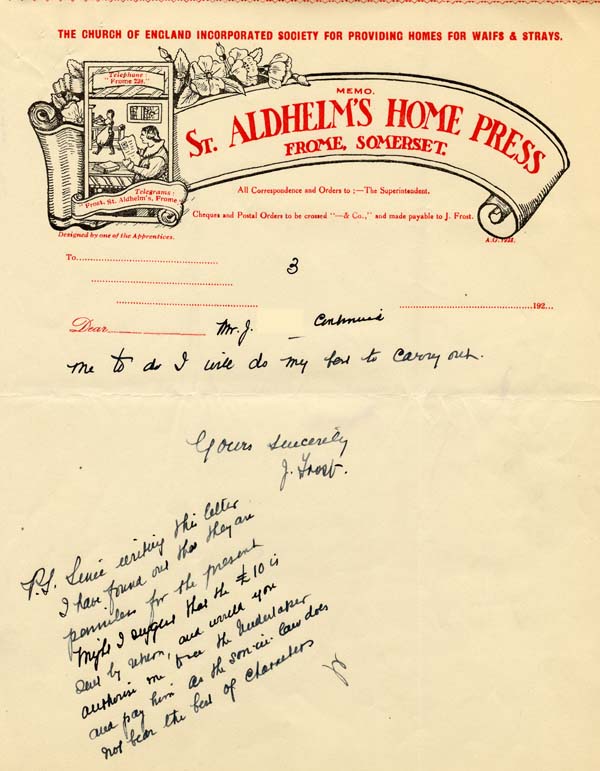 THE CHURCH OF ENGLAND INCORPORATED SOCIETY FOR PROVIDING HOMES FOR WAIFS & STRAYS.
Telephone:
"Frome 238."
MEMO.
ST. ALDHELM'S HOME PRESS
FROME, SOMERSET.
Telegrams:
"Frost, St. Aldhelm's, Frome
All Correspondence and Orders to ;—The Superintendent.
Cheques and Postal Orders to be crossed "—& Co.," and made payable to J. Frost.
Designed by one of the Apprentices.
To
3
192...
Dear
Mr. J. Continued
me to do I will do my best to carry out.
Yours sincerely
J. Frost.
P.S. Since writing this letter
I have found out that they are
penniless for the present
Might I suggest that the £10 is
sent by return, and would you
authorise me to see the Undertaker
and pay him as the son-in-law does
not bear the best of characters